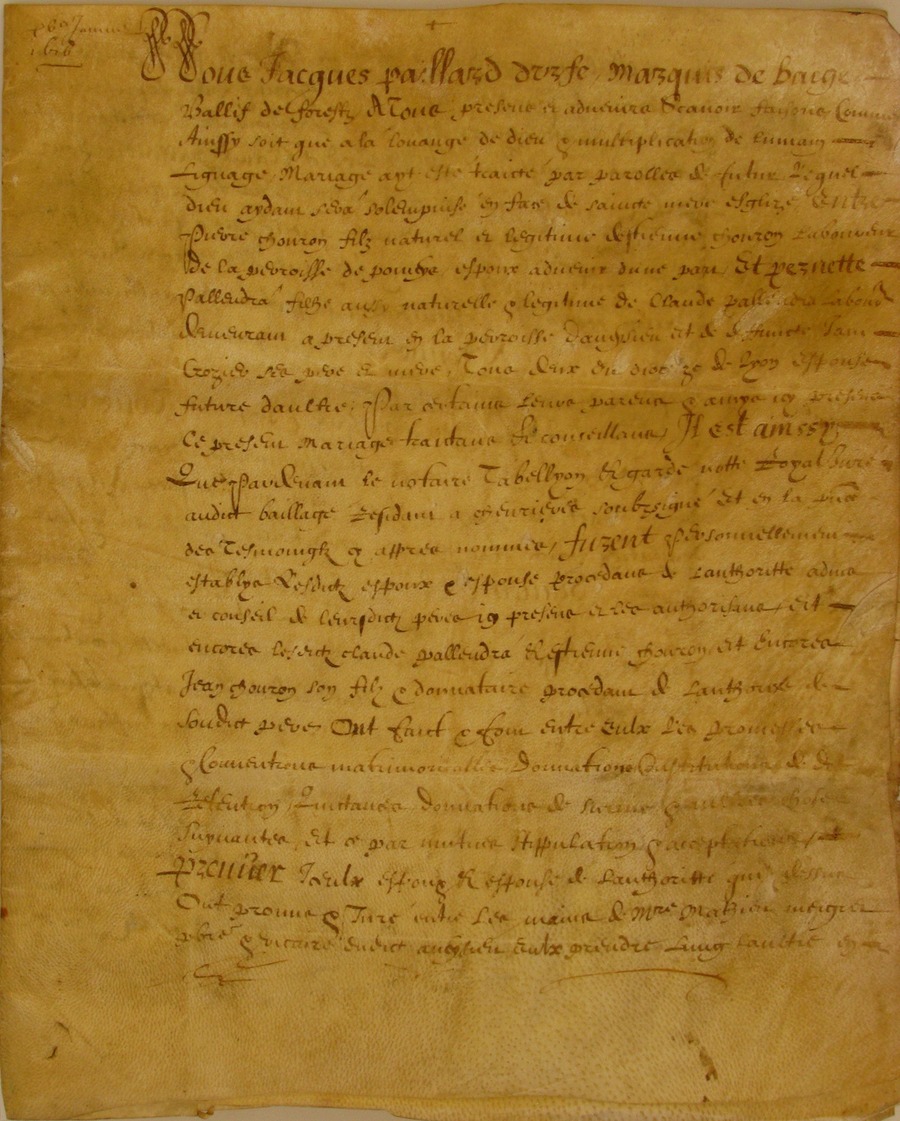 Nous Jacques paillard durfe, Marquis de bauge
Ballif de forestz A Tous presens et advenirs Scavoir faisons Comme
Ainssy soit que a la louange de dieu & multiplication de lumain
Lignage Mariage ayt esté traicté par parolles de futur Lequel
dieu aydant sera solempnisé en face de saincte mere esglize Entre
Pierre chouron filz naturel et legitime destienne chouron Laboureur
de la perroisse de espoux advenir dune part Et peznette
Pallendra filhe aussy naturelle & legitime de Claude pallendra Labour
demeurant a present en la perroisse et de deffuncte
Crozier ses pere et mere, Tous deux du dioceze de lyon espouse
future daultre; Par certains leurs parens & amys icy presens
Ce present Mariage traictans & conseillans, Il est ainssy
Que Pardevant le notaire Tabellyon & garde notte Royal Juré
audict bailliage Residant a chevrieres soubzsigné Et en la
des Tesmoingtz cy appres nommes, furent Personnellement
establys Lesdictz espoux & espouse procedans de Lauthoritte advis
et conseil de leursdictz peres icy presens et les authorisans, Et
encores lesdictz claude pallendra & Estienne chouron, et Encores
Jean chouron son filz & donnataire procedant de Lauthorité de
Sondict pere Ont faict & entre Eulx Les promesses
& Conventions matrimonialles Donnations Constitutions de dot
Retention, Quictances donnations de survie & aultres choses
Suyvantes, Et ce par mutues stippulation & acceptations,
Premier Iceulx espoux & espouse de Lauthoritte que dessus
Ont promis & Juré entre Les mains de Mre Mathieu
pbre & vicaire dudict Eulx prendre Lung Laultre en